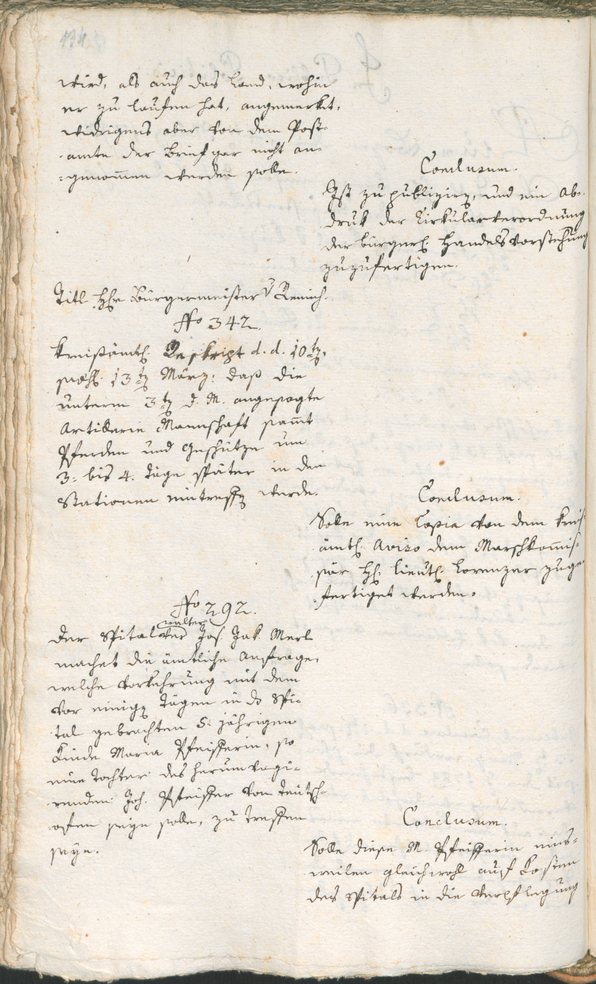 wird, als auch das Land, wohin
er zu laufen hat, angemerket,
widrigens aber von dem Post-
amte der Brief gar nicht an-
genommen werden solle.
Conclusum.
Ist zu publiziern, und ein Ab-
druk der Cirkularverordnung
der bürgerl: Handelsvorstehung
zuzufertigen.
Titl Hr Bürgermeister v
No 342.
Kreißämtl: Reskript d. d. 10tn,
13tn März: daß die
unterm 3tn d. M. angesagte
Artillerie Mannschaft sammt
Pferden und Geschütze um
3. bis 4. Täge später in den
Stationen eintreffen werde.
Conclusum.
Solle eine Copia von dem kreis-
ämtl: Aviso dem Marschkommis-
sär H: Lorenzer zuge-
fertiget werden.
No 292.
Der Spitalverwalter Jos. Jak. Merl
machet die ämtliche Anfrage,
welche Vorkehrung mit dem
vor einign Tägen in ds Spi-
tal gebrachten 5. jährigen
Kinde Maria Pfeifferin, so
eine Tochter des herumvagi-
renden Joh. Pfeiffer von
seyn solle, zu treffen
seye.
Conclusum.
Solle diese M. Pfeifferin eins-
weilen gleichwohl auf Kosten
des Spitals in die Verpflegung